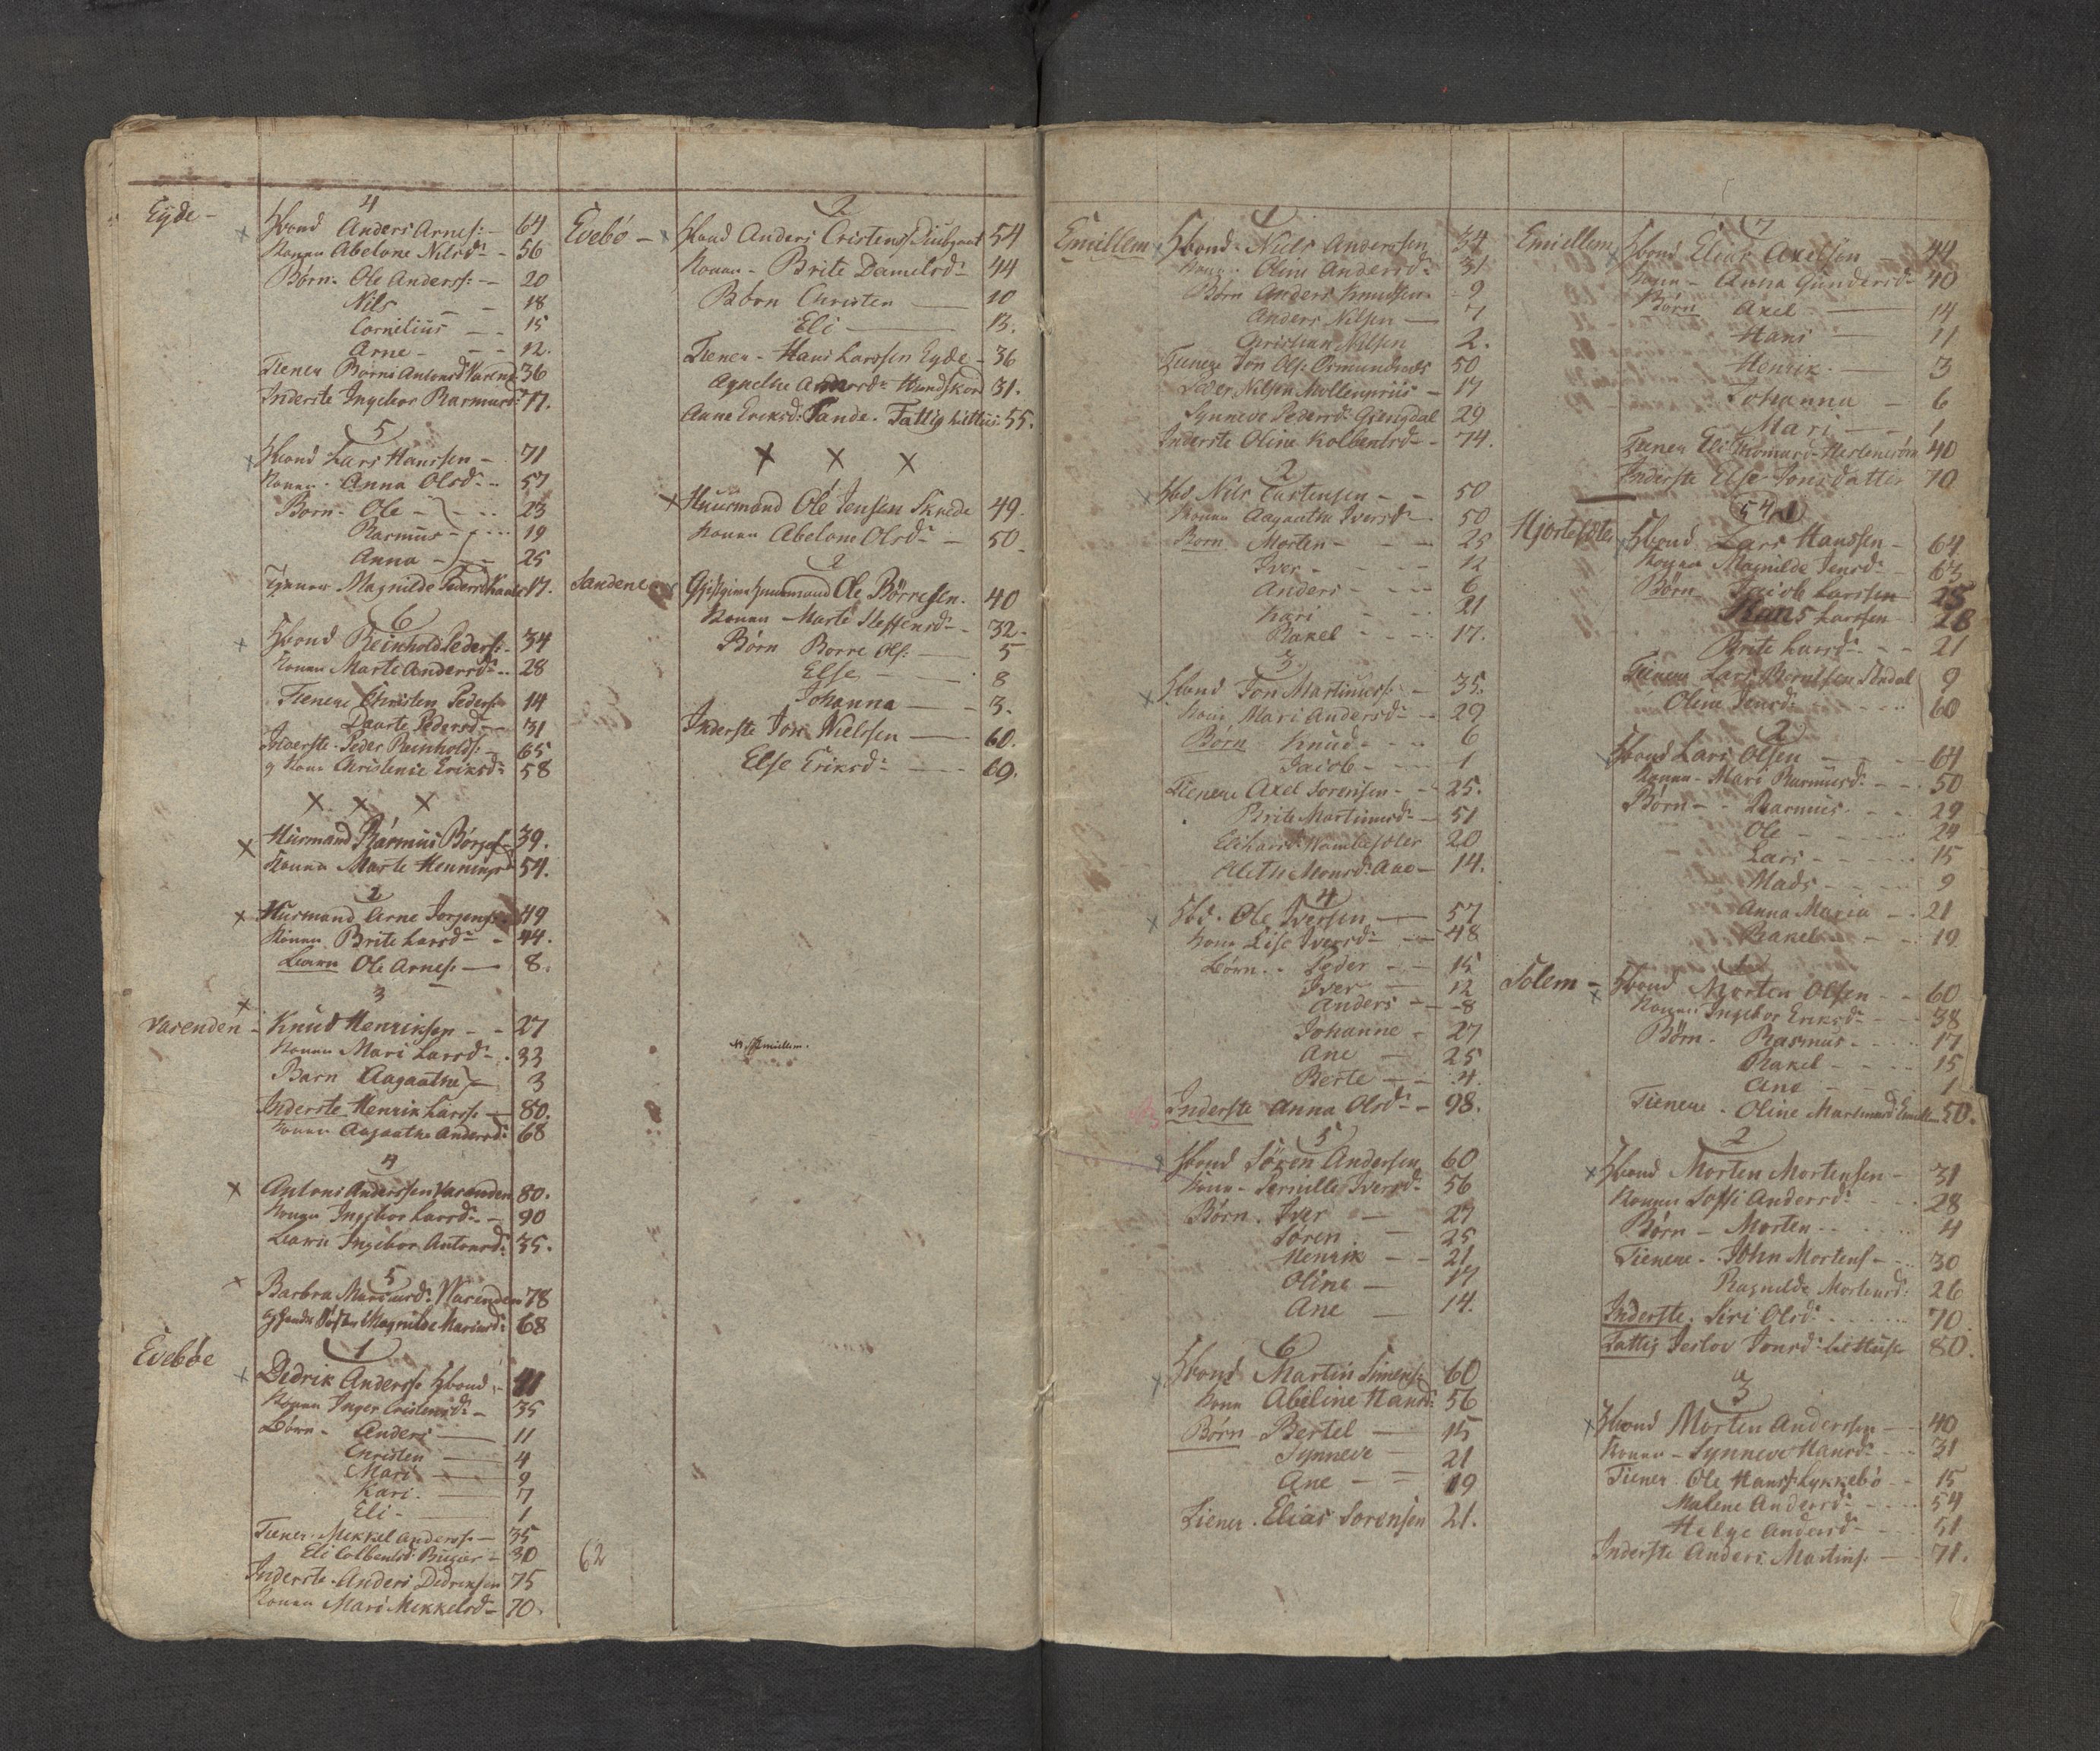 Eyde -
4
Hbond Anders Arnes: - 64
Konen Abelone Nilsd: - 56
Børn - Ole Anderss: - 20
Nils - 18
Cornilius - 15
Arne - 12.
36
Inderste Ingebor Rasmusd: 77.
5
Hbond Lars Hanssen - 71
Konen - Anna Olsd: - 57
Børn - Ole - 23
Rasmus - 19
Anna - 25
Magnilde Pedersd: 17.
6
Hbond Reinhold Peders: - 34
Konen Marte Andersd: - 28
Tienere Christen Peders: 14
Daarte Pedersd: 31
Inderste - Peder Reinholds: - 65
og Kone Christense Eriksd: 58
x x x
Huusmand Rasmus Børges: 39.
Konen Marte Henningsd: 54.
2
Husmand Arne Jorgens: 49
Konen Brite Larsd: - 44.
Baarn Ole Arnes: - 8.
3
Varenden - Knud Henriksen - 27
Konen Mari Larsd: - 33
Barn Aagaathe - 3
Inderste Henrik Larss: - 80.
Konen Aagaathe Andersd: 68
4
Antoni Anderssen Varenden 80.
Konen Ingebor Larsd: - 90
Baarn Ingebor Antonsd: 35.
5
Barbra Mariusd: Varenden 78
Søster Magnilde Mariusd: 68
Evebøe
1
Dedrik Anderss: Hbond - 41
Konen Inger Cristensd: - 35
Børn - Anders - 11
Christen - 4
Mari - 9
Kari - 7
Eli - 1
Tiener - Mekkel Anderss: - 35
Eli Colbensd: - 30
Inderste - Anders Dedriksen 75
Konen Mari Mekkelsd: - 70.
Evebø -
2
Hbond Anders Cristens: 54
Konen - Brite Danielsd: 44
Børn Christen - 10
Eli - 13.
Tiener - Hans Larssen Eyde - 36
Agnethe 31.
Anne Ericksd: Sande - Fattig 55.
x x x
Huusmand Ole Jensen Skrede 49.
Konen Abelone Olsd: - 50.
2
Sandene
Ole Børresen. 40
Konen - Marte Steffensd: - 32.
Børn Borre Ols: - 5
Else - 8
Johanna - 3.
Inderste Jon Nielsen - 60.
Else Eriksd: - 69.
62
Emiellem
1
Hbond - Niels Anderssen 34
Kone - Oline Andersd: 31
Børn Anders Knudsen 9
Anders Nilsen - 7
Christian Nilsen 2.
Tienere Jon Ols: Osmundnæs 50
Peder Nilsen - 17
Synneve Pedersd: Giengdal 29
Inderste Oline Kolbensd: - 74.
2
Hbd Nils Tostensen - - 50
Konen Aagaathe Iversd: 50
Børn Morten - 25
Iver - 12
Anders - 6
Kari - 21
Rakel - 17.
3
Hbond Jon Martinuss: - 35.
Kone Mari Andersd: - 29
Børn Knud - 6
Jacob - 1
Tienere Axel Sorensen - 25.
Brite Martinusd: - 51
20
Aleth Monsd: Aae - 14.
4
Hbd. Ole Iversen - 57
Kone Lise Iversd: - 48
Børn - Peder - 15
Iver - 12
Anders - 8
Johanne - 27
Ane - 25
Berte - 4.
Inderste Anna Olsd: - 98.
5
Hbond Sören Andersen 60
Kone - Pernille Iversd: 56
Børn. Iver - 27
Søren - 25
Henrik - 21
Oline - 17
Ane - 14.
6
Hbond Martin Simens: 60
Kone Abeline Hansd: 56
Børn Bertel - 15
Synneve - 21
Ane - 19
Tiener - Elias Sorensen 21.
Emiellem
7
Hbond Elias Axelsen - 44
Konen - Anna Gundersd: 40
Børn Axel - 14
Hans - 11
Henrik - 3
Johanna - 6
Mari - 1
Tiener Eli Thomasd: 40
Inderste Else Jonsdatter 70
Hjortesæter
1
Hbond Lars Hanssen - 64
Konen Magnilde Jensd: 63
Børn Jacob Larssen 25
Hans Larssen 28
Brite Larsd: - 21
Tienere Lars Berntsen Andal 9
Oline Jensd: - 60
2
Hbond Lars Olsen - 64
Konen - Mari Rasmusd: - 50
Børn - Rasmus - 29
Ole - 24
Lars - 15
Mads - 9
Anna Maria - 21
Rakel - 19
Solem -
1
Hbond Morten Olsen - 60
Konen Ingebor Eriksd: - 38
Børn - Rasmus - 17
Rakel - 15
Ane - 1
Tienere - Oline 50.
2
Hbond Morten Mortensen - 31
Konen Soffi Andersd: 28
Børn - Morten - 4
Tienere - John Mortens: - 30
Ragnilde Mortensd: 26
Inderste. Siri Olsd: 70.
Fattig Jonsd: 80.
3
Hbond Morten Anderssen - 40
Konen - Synneve Hansd: 31
Tiener Ole Hans: Lykkebø - 15
Malene Andersd: - 54
Helge Andersd: 51
Inderste Anders Martins: - 71.